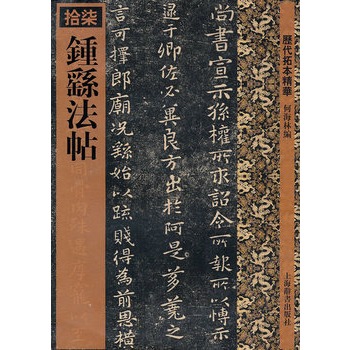 拾柒
鍾繇法帖
歷代拓本精華
何海林編
上海辭書出版社
尚書宣示孫權所求詔令所報所以博示
逮于卿佐必冀良方出於阿是芻蕘之
言可擇郎廟況繇始以疏賤得為前恩橫